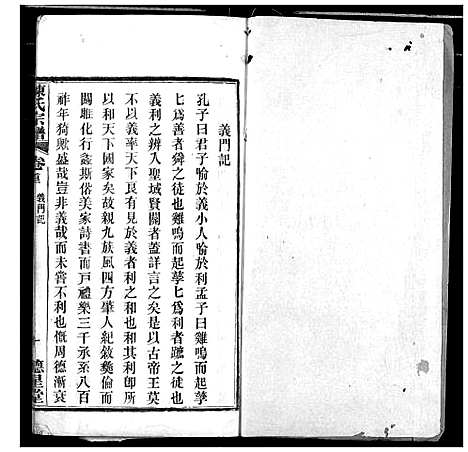 義門記
孔子曰君子喻於義小人喻於利孟子曰雞鳴而起孳
孳為善者舜之徒也雞鳴而起孳孳為利者蹠之徒也
義利之辨入聖域賢關者蓋詳言之矣是以古帝王莫
不以義率天下良有見於義者利之和也其利卽所
以和天下國家矣故親九族風四方肇人紀敘彝倫而
關雎化行螽斯俗美家詩書而戶禮樂三千承系八百
祚年猗歟盛哉豈非義哉而未嘗不利也慨周德漸衰
陳氏宗譜
卷首
義門記
一
德星堂